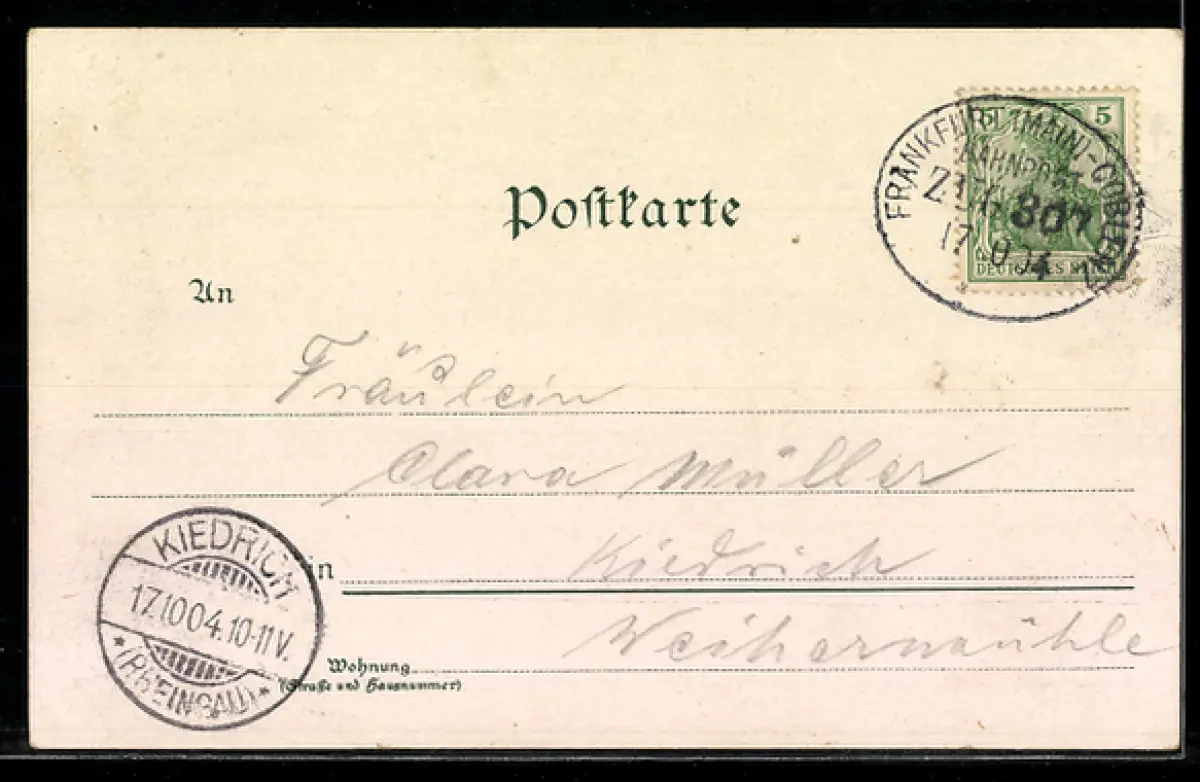 Postkarte
5 5
DEUTSCHES REICH
FRANKFURT (MAIN)-COBLENZ
BAHNPOST
ZUG 807
17 10 04
An
Fräulein
Clara Müller
in Kiedrich
Weihermühle
Wohnung
(Straße und Hausnummer)
KIEDRICH
17.10.04.10-11V.
* (RHEINGAU) *